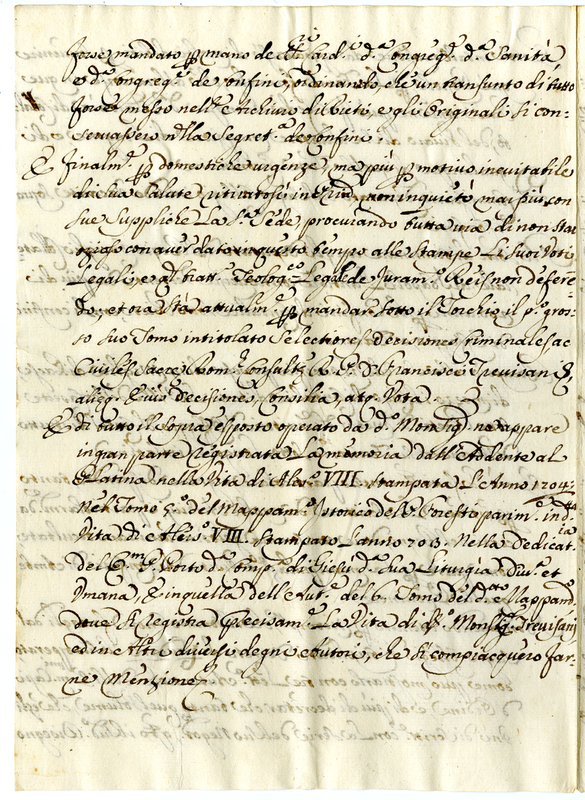 fosse mandato p mano de Card.i d.a Congreg.e d.a Sanità,
e d.a Congreg.e de Confini, ordinando, che un transunto di tutto
fosse messo nell' Archivio di Rieti, e gli Originali si con=
servassero nella Segret.a de Confini.
E finalm.e p domestiche urgenze, ma più p motivo inevitabile
di sua Salute ritiratosi in non inquietò mai più con
sue Suppliche La S.a Sede procurando tutta via di non star
ozioso con aver dato in questo tempo alle Stampe Li suoi Voti
Legali, e al tratt.o Teolog.co Legale de Juram.o Reis non deferen=
do, et ora stà attualm.e p mandar sotto il Torchio il p.o gros=
so suo Tomo intitolato Selectiores decisiones criminales ac
Civiles Sacre Rom.e Consulte R. P. D. Francisci Trevisani
aliaeq. Eius decisiones, Consilia, atq. Vota.
E di tutto il sopra esposto operato da d.o Monsig.r ne appare
in gran parte registrata La memoria dall' Addente al
Platina nella Vita di Aless.o VIII. stampata L'Anno 1704;
Nel Tomo 5.o del Mappam.o Istorico del Foresto parim.e in d.a
Vita di Aless.o VIII. stampato L'anno 703. Nella Dedicat.ia
del P. Porto d. Comp.a di Giesù d.a Sua Liturgia Div.a et
Umana, E in quella dell' Aut.e del 6. Tomo del d.o Mappam.
dove si registra precisam.e La Vita di d.o Monsig.r Trevisani,
ed in Altri diversi degni Autori, che si compiacquero far=
ne Menzione